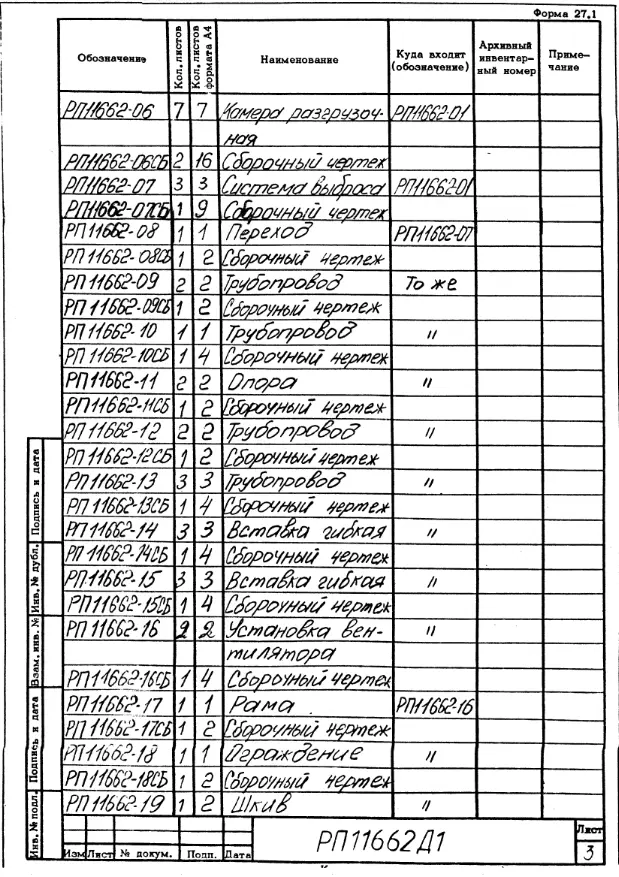 Форма 27.1
Обозначение Кол. листов Кол. листов формата А4 Наименование Куда входит (обозначение) Архивный инвентар- ный номер Приме- чание
РП11662-06 7 7 Камера разгрузоч- РП11662-01
ная
РП11662-06СБ 2 16 Сборочный чертеж
РП11662-07 3 3 Система выброса РП11662-01
РП11662-07СБ 1 9 Сборочный чертеж
РП11662-08 1 1 Переход РП11662-07
РП11662-08СБ 1 2 Сборочный чертеж
РП11662-09 2 2 Трубопровод То же
РП11662-09СБ 1 2 Сборочный чертеж
РП11662-10 1 1 Трубопровод "
РП11662-10СБ 1 4 Сборочный чертеж
РП11662-11 2 2 Опора "
РП11662-11СБ 1 2 Сборочный чертеж
РП11662-12 2 2 Трубопровод "
РП11662-12СБ 1 2 Сборочный чертеж
РП11662-13 3 3 Трубопровод "
РП11662-13СБ 1 4 Сборочный чертеж
РП11662-14 3 3 Вставка гибкая "
РП11662-14СБ 1 4 Сборочный чертеж
РП11662-15 3 3 Вставка гибкая "
РП11662-15СБ 1 4 Сборочный чертеж
РП11662-16 2 2 Установка вен- "
тилятора
РП11662-16СБ 1 4 Сборочный чертеж
РП11662-17 1 1 Рама РП11662-16
РП11662-17СБ 1 2 Сборочный чертеж
РП11662-18 1 1 Ограждение "
РП11662-18СБ 1 2 Сборочный чертеж
РП11662-19 1 2 Шкив "
Подпись и дата
Инв. № дубл.
Взам. инв. №
Подпись и дата
Инв. № подл.
Изм Лист № докум. Подп. Дата
РП11662Д1
Лист
3